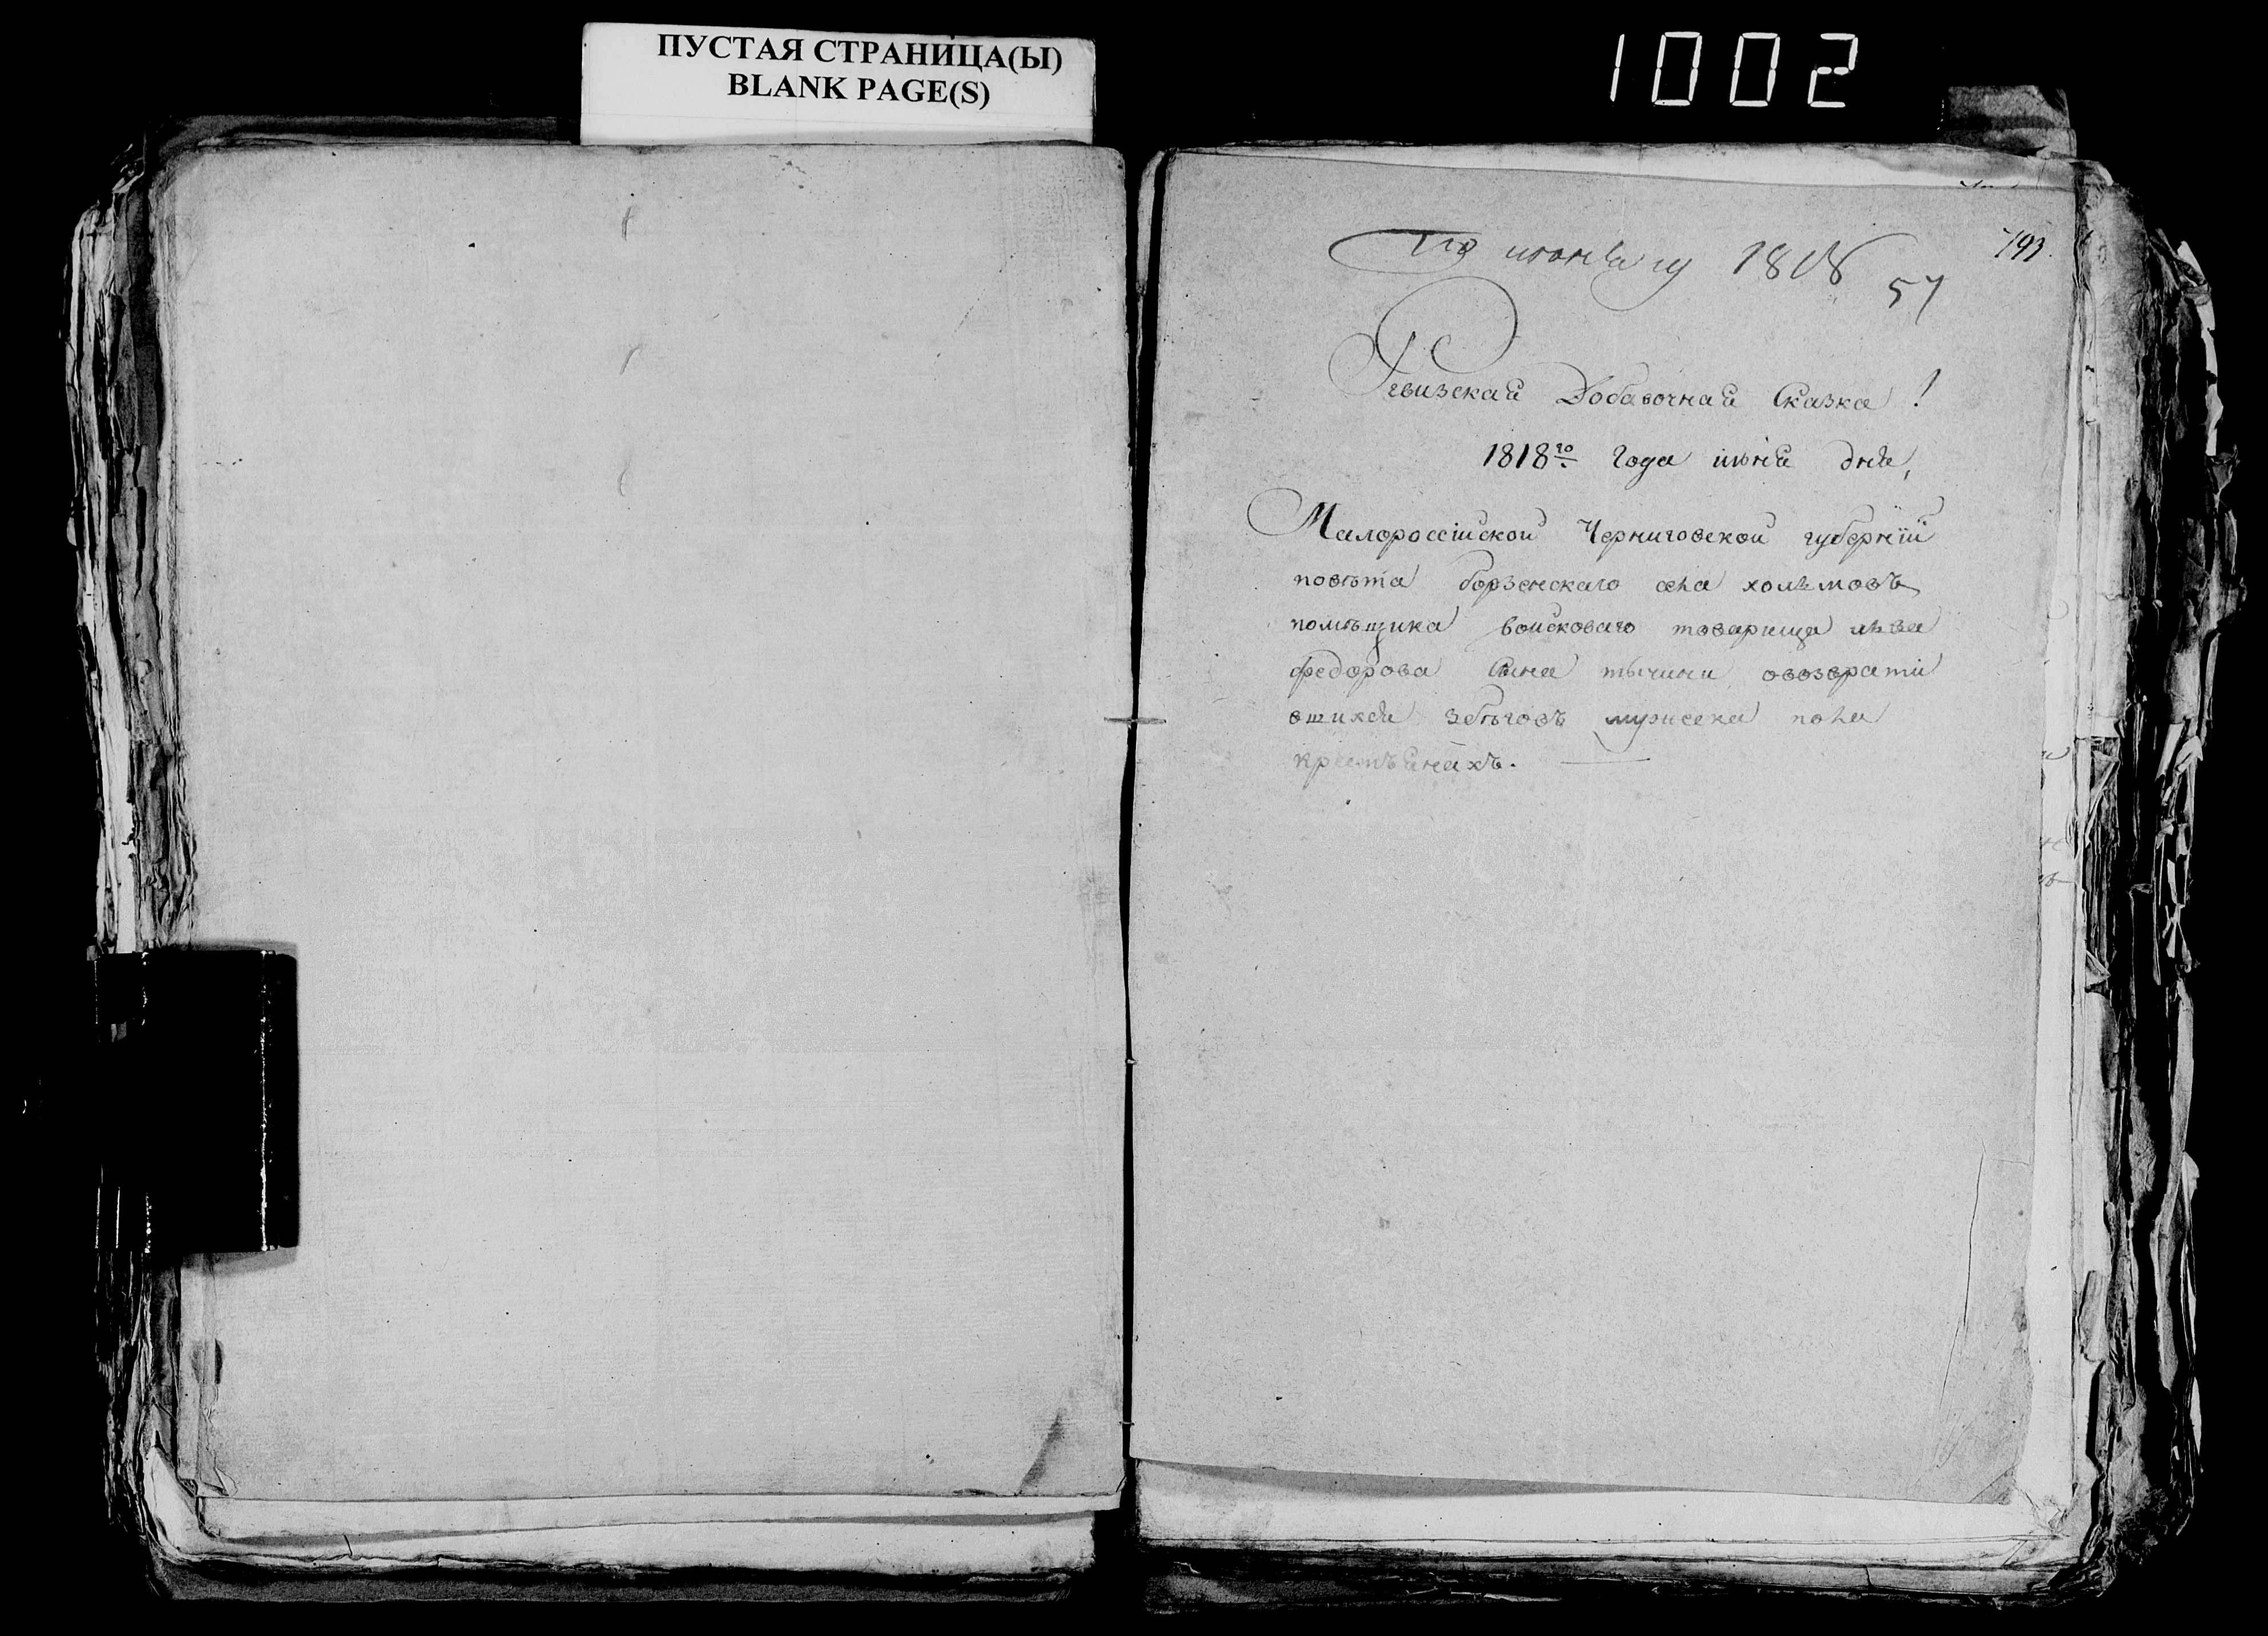 ПУСТАЯ СТРАНИЦА(Ы)
BLANK PAGE(S)
1002
793.
1818
57
Ревизская Добавочная Сказка!
1818го года июня дня,
Малороссійской Черниговской губернїи
повѣта борзенскаго села холѣмовъ
помѣщика войсковаго товарища лва
федорова сина тычини овозврати
вшихся збѣговъ мужеска пола
крестьянахъ.